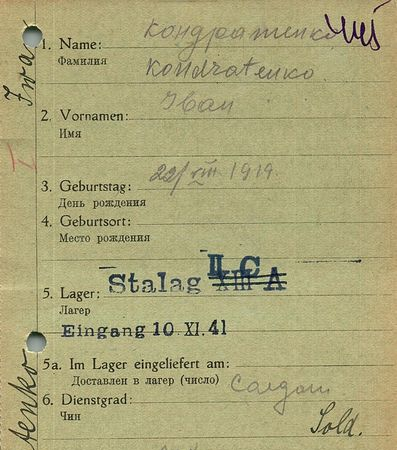 Кондратенко
1. Name: Kondratenko
Фамилия
Іван
2. Vornamen:
Имя
22/VIII 1919.
3. Geburtstag:
День рождения
4. Geburtsort:
Место рождения
II C
5. Lager: Stalag XIII A
Лагер
Eingang 10 XI. 41
5a. Im Lager eingeliefert am:
Доставлен в лагер (число)
6. Dienstgrad:
Чин
Sold.
Iwa
tenko